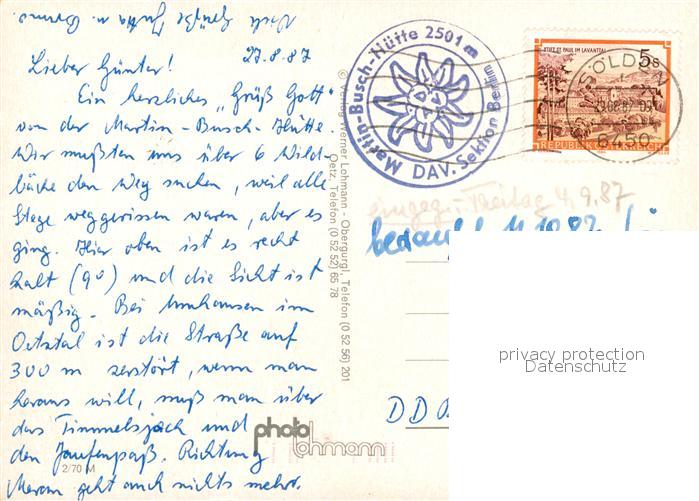 27.8.87
Lieber Günter!
Ein herzliches "Grüß Gott"
von der Martin-Busch-Hütte.
Wir mußten uns über 6 Wild-
bäche den Weg suchen, weil alle
Stege weggerissen waren, aber es
ging. Hier oben ist es recht
kalt (9°) und die Sicht ist
mäßig. Bei Umhausen im
Oetztal ist die Straße auf
300 m zerstört, wenn man
heraus will, muß man über
das Timmelsjoch und
den Jaufenpaß. Richtung
Meran geht auch nichts mehr.
Grüße Jutta u.
2/70 M
photo
lohmann
© Verlag Werner Lohmann - Obergurgl, Telefon (0 52 56) 201
Oetz, Telefon (0 52 52) 65 78
Martin-Busch-Hütte 2501m
DAV. Sektion Berlin
STIFT ST. PAUL IM LAVANTTAL
5s
REPUBLIK ÖSTERREICH
SÖLDEN
6450
eingeg. Freitag 4.9.87
11.10.87
DD
privacy protection
Datenschutz